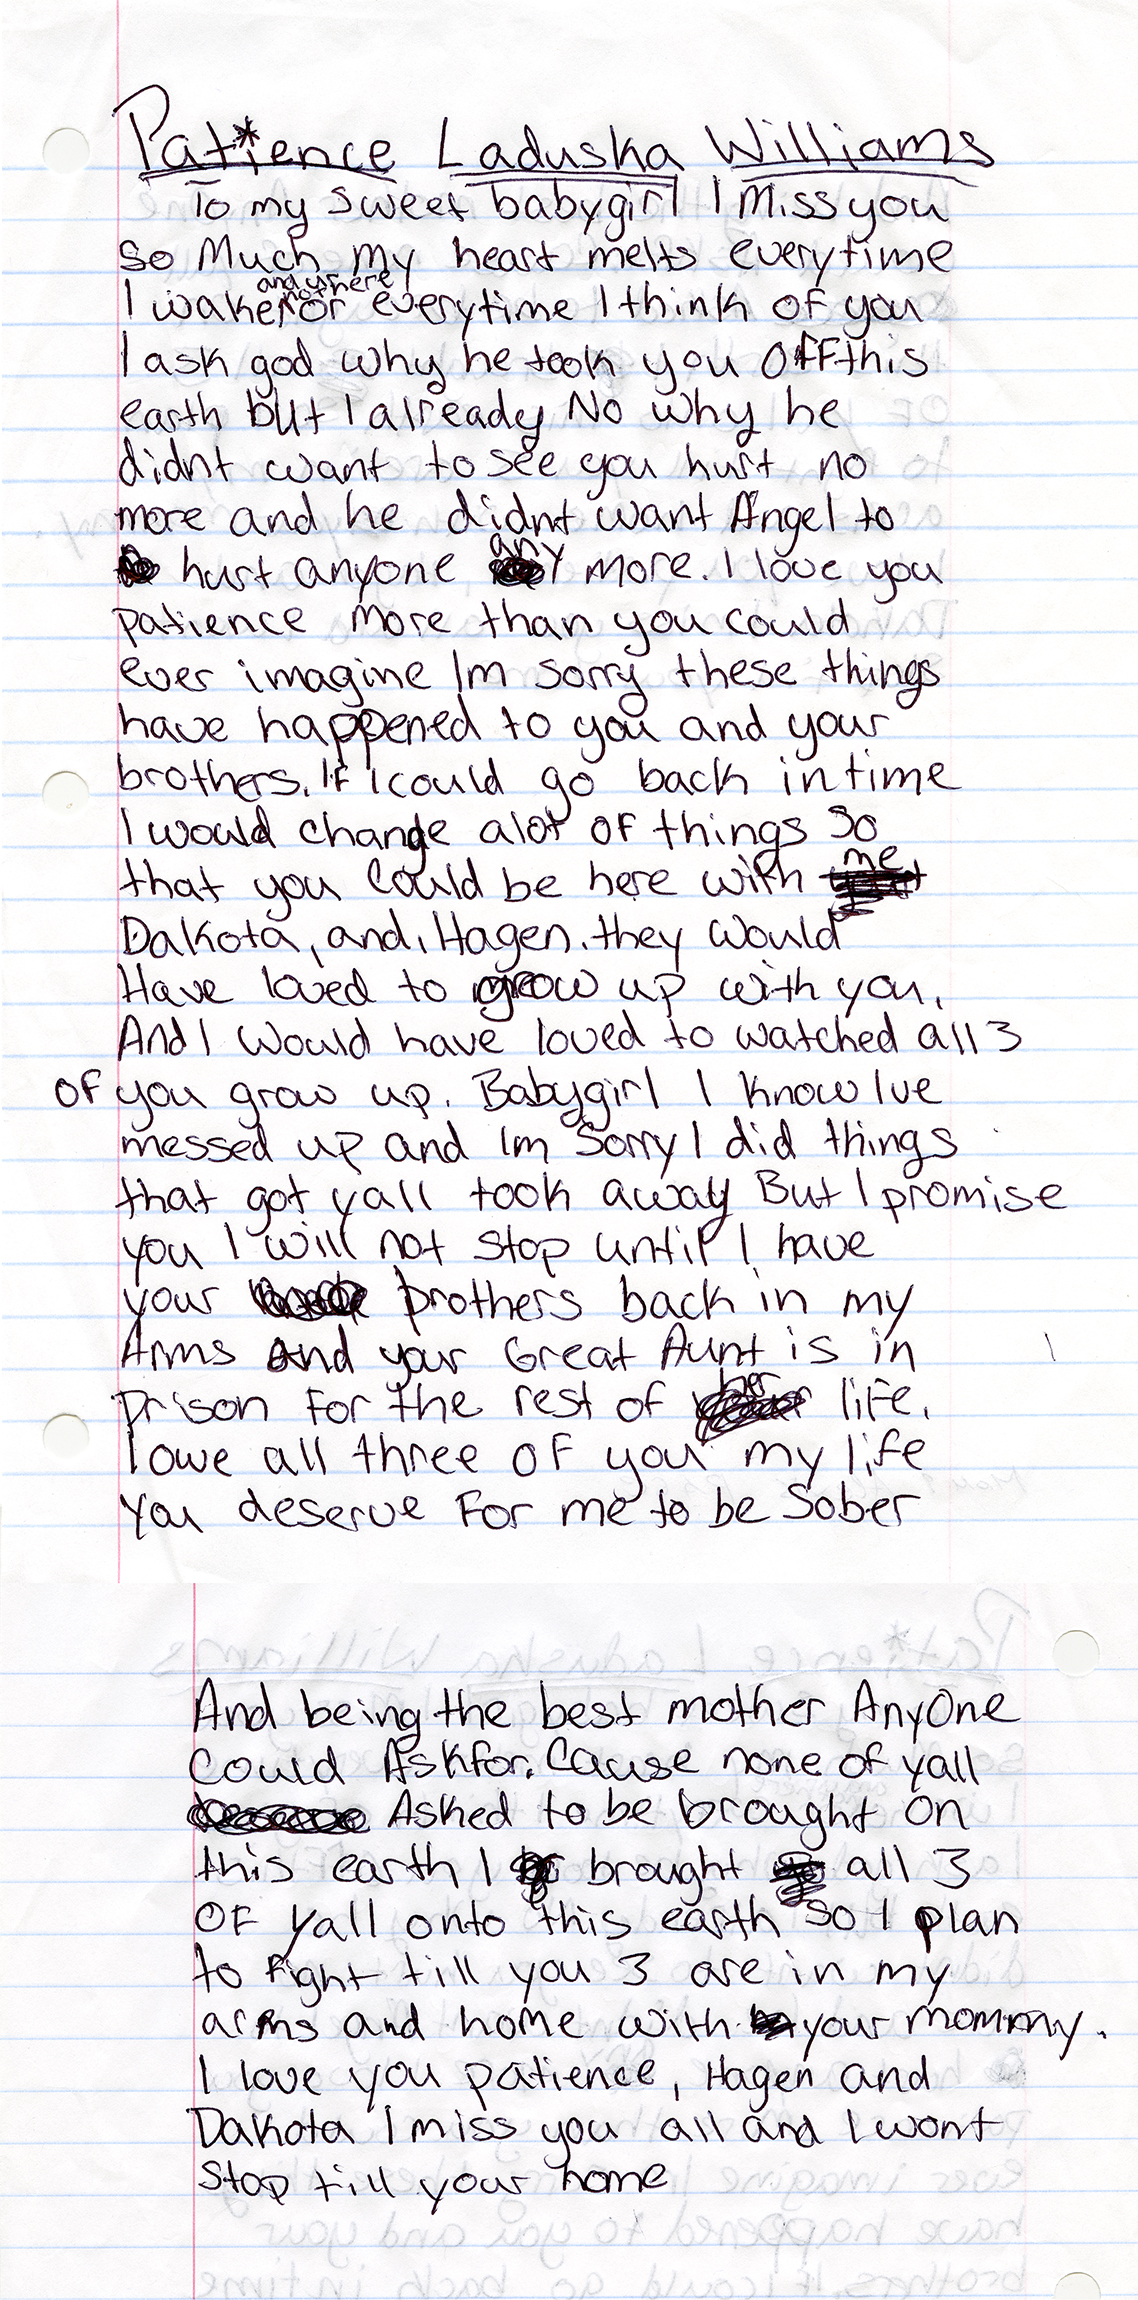 Pat*ience Laduska Williams
To my sweet babygirl I Miss you
so Much my heart melts everytime
I wake and your not here or everytime I think of you
I ask god why he took you OFF this
earth but I already No why he
didnt want to see you hurt no
more and he didnt want Angel to
hurt anyone any more. I love you
patience More than you could
ever imagine Im sorry these things
have happened to you and your
brothers. If I could go back in time
I would change alot OF things So
that you could be here with me
Dakota, and, Hagen. they would
Have loved to grow up with you.
And I Would have loved to watched all 3
OF you grow up. Babygirl I know Ive
messed up and Im Sorry I did things
that got yall took away But I promise
you I will not stop until I have
your brothers back in my
Arms And your Great Aunt is in
prison For the rest of her life.
I owe all three OF you my life
You deserve For me to be Sober
And being the best mother AnyOne
Could Ask for. Cause none of yall
Asked to be brought On
this earth I brought all 3
OF Yall onto this earth so I plan
to Fight till you 3 are in my
arms and home with your mommy.
I love you patience, Hagen and
Dakota I miss you all and I wont
Stop till your home